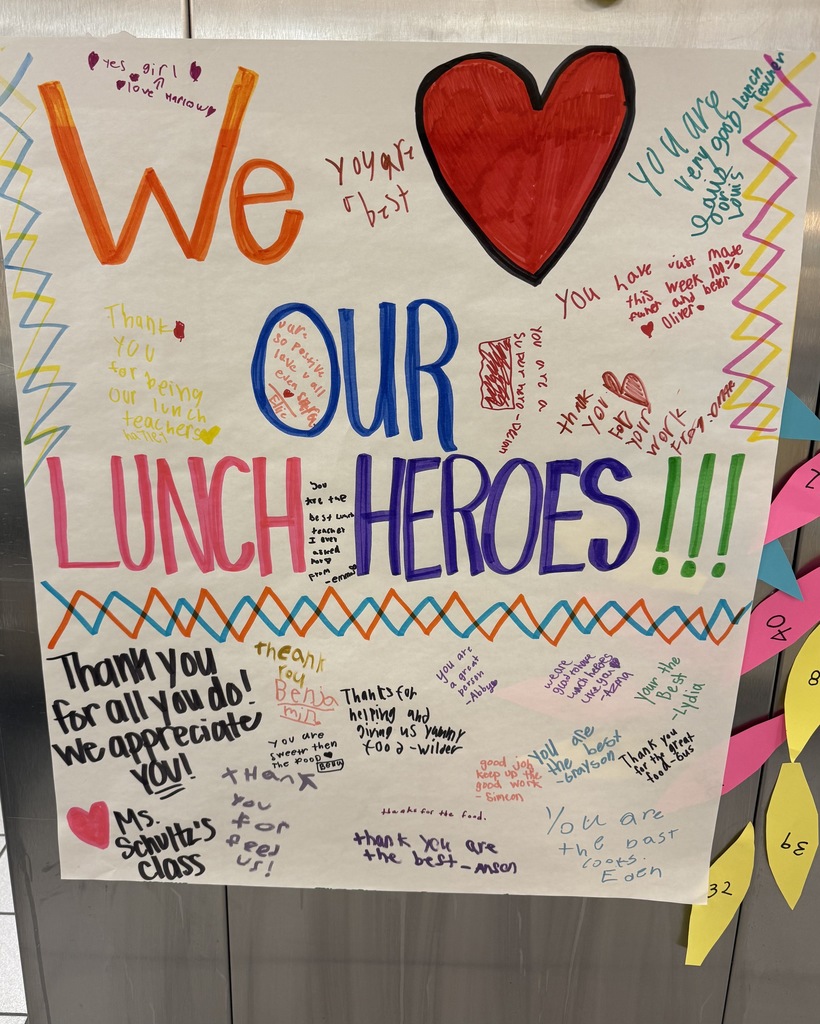 yes girl
love Harlow
We
you are
best
you are
very good
lunch
teacher
Louis
You have just made
this week 100%
and beter
Oliver
Thank
you
for being
our lunch
teachers
OUR
ur
so positive
love u all
even
Ellie
You are a
thenk
you
For
your
work
From
LUNCH
HEROES!!!
You
Are the
best lunch
teacher
I ever
asked
for
from
Thank you
for all you do!
We appreciate
you!
Ms.
Schultz's
class
theank
you
Benja
min
You are
sweetr then
the food
Thanks for
helping and
giving us yummy
food -Wilder
you are
a great
person
-Abby
we are
glad to have
lunch heroes
like you
-Azma
Your the
Best
-Lydia
good job
keep up the
good work
-Simeon
You are
the best
-Grayson
Thank you
for the great
food -Gus
thank
you
for
feed
us!
thanks for the food.
thank you are
the best -Anson
You are
the bast
cooks.
Eden
7
40
8
39
32